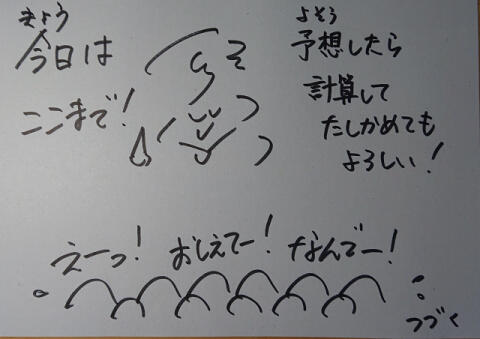 きょう
今日は
ここまで!
よそう
予想したら
計算して
たしかめても
よろしい!
えーっ! おしえてー! なんでー!
つづく